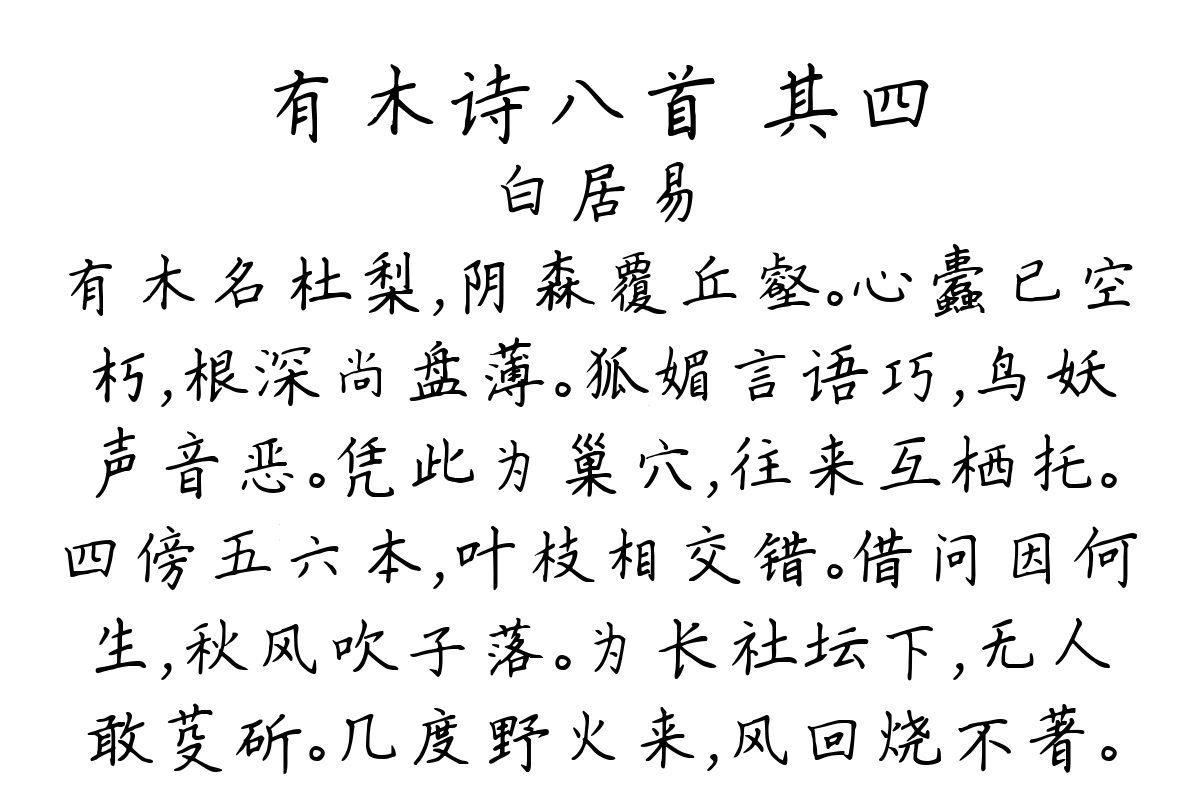 有木诗八首 其四
白居易
有木名杜梨,阴森覆丘壑。心蠹已空
朽,根深尚盘薄。狐媚言语巧,鸟妖
声音恶。凭此为巢穴,往来互栖托。
四傍五六本,叶枝相交错。借问因何
生,秋风吹子落。为长社坛下,无人
敢芟斫。几度野火来,风回烧不著。